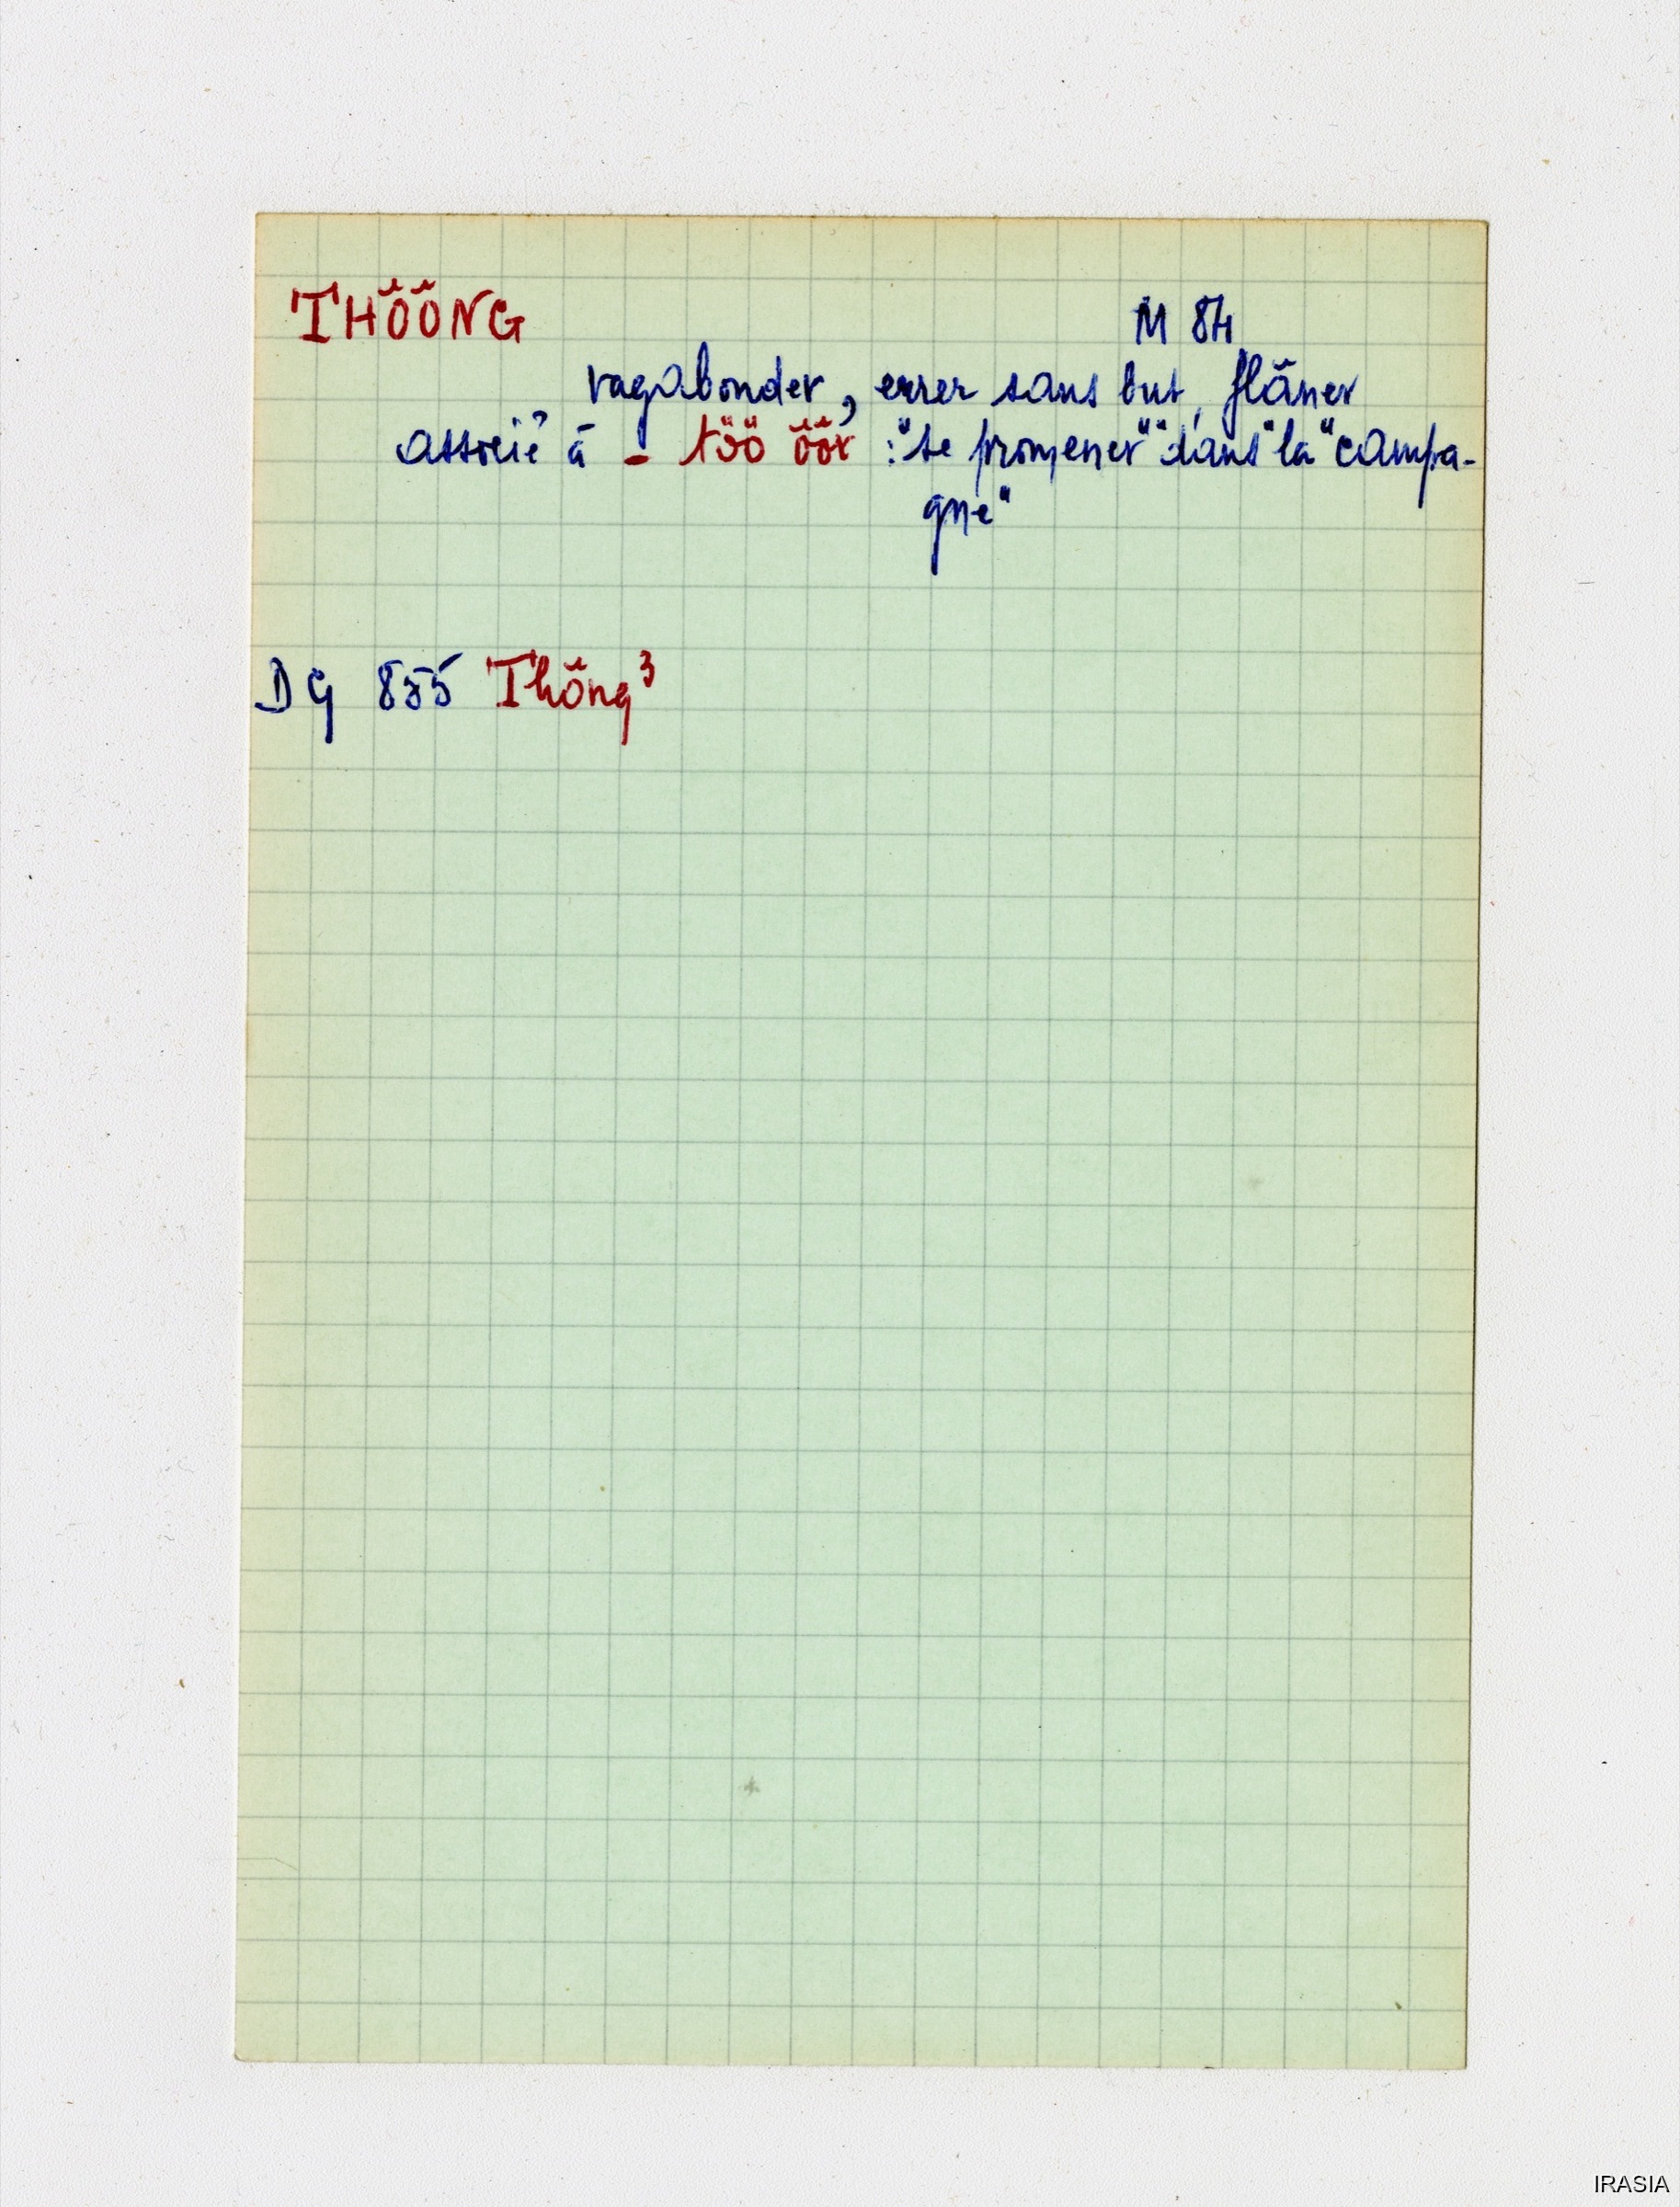 THÖÖNG
M 84
vagabonder, errer sans but, flâner
associé à - töö öör : "se promener" "dans" la "campa-
gne"
DG 855 Thöng³
IRASIA